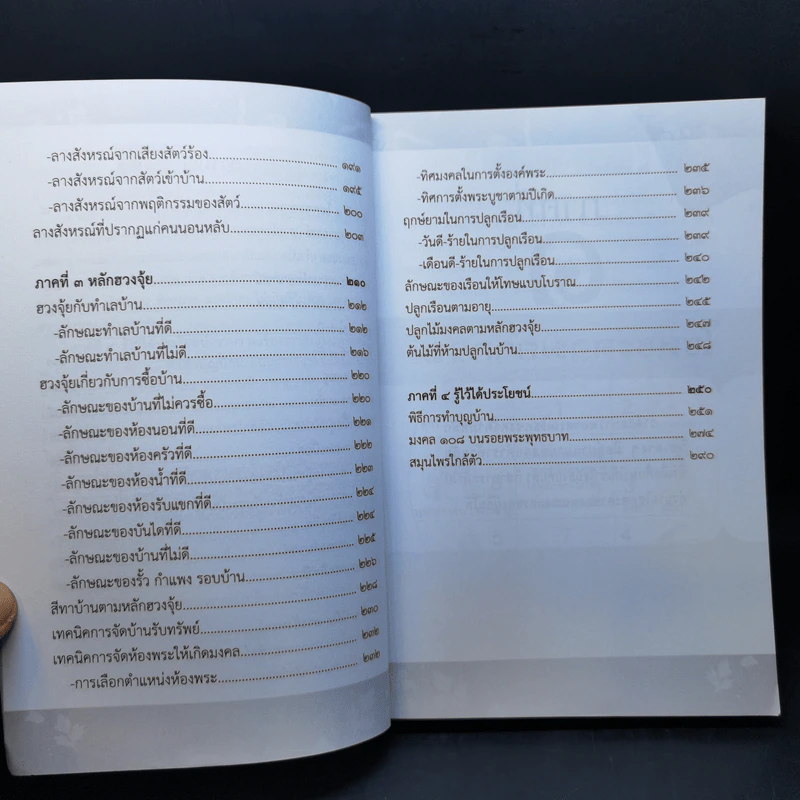 -ลางสังหรณ์จากเสียงสัตว์ร้อง........................๑๙๑
-ลางสังหรณ์จากสัตว์เข้าบ้าน........................๑๙๕
-ลางสังหรณ์จากพฤติกรรมของสัตว์........................๒๐๐
ลางสังหรณ์ที่ปรากฏแก่คนนอนหลับ........................๒๐๓
ภาคที่ ๓ หลักฮวงจุ้ย........................๒๑๐
ฮวงจุ้ยกับทำเลบ้าน........................๒๑๒
-ลักษณะทำเลบ้านที่ดี........................๒๑๒
-ลักษณะทำเลบ้านที่ไม่ดี........................๒๑๖
ฮวงจุ้ยเกี่ยวกับการซื้อบ้าน........................๒๒๐
-ลักษณะของบ้านที่ไม่ควรซื้อ........................๒๒๐
-ลักษณะของห้องนอนที่ดี........................๒๒๑
-ลักษณะของห้องครัวที่ดี........................๒๒๒
-ลักษณะของห้องน้ำที่ดี........................๒๒๓
-ลักษณะของห้องรับแขกที่ดี........................๒๒๔
-ลักษณะของบันไดที่ดี........................๒๒๔
-ลักษณะของบ้านที่ไม่ดี........................๒๒๕
-ลักษณะของรั้ว กำแพง รอบบ้าน........................๒๒๖
สีทาบ้านตามหลักฮวงจุ้ย........................๒๒๘
เทคนิคการจัดบ้านรับทรัพย์........................๒๓๐
เทคนิคการจัดห้องพระให้เกิดมงคล........................๒๓๒
-การเลือกตำแหน่งห้องพระ........................๒๓๒
-ทิศมงคลในการตั้งองค์พระ........................๒๓๕
-ทิศการตั้งพระบูชาตามปีเกิด........................๒๓๖
ฤกษ์ยามในการปลูกเรือน........................๒๓๙
-วันดี-ร้ายในการปลูกเรือน........................๒๓๙
-เดือนดี-ร้ายในการปลูกเรือน........................๒๔๐
ลักษณะของเรือนให้โทษแบบโบราณ........................๒๔๒
ปลูกเรือนตามอายุ........................๒๔๕
ปลูกไม้มงคลตามหลักฮวงจุ้ย........................๒๔๗
ต้นไม้ที่ห้ามปลูกในบ้าน........................๒๔๘
ภาคที่ ๔ รู้ไว้ได้ประโยชน์........................๒๕๐
พิธีการทำบุญบ้าน........................๒๕๑
มงคล ๑๐๘ บนรอยพระพุทธบาท........................๒๗๔
สมุนไพรใกล้ตัว........................๒๙๐